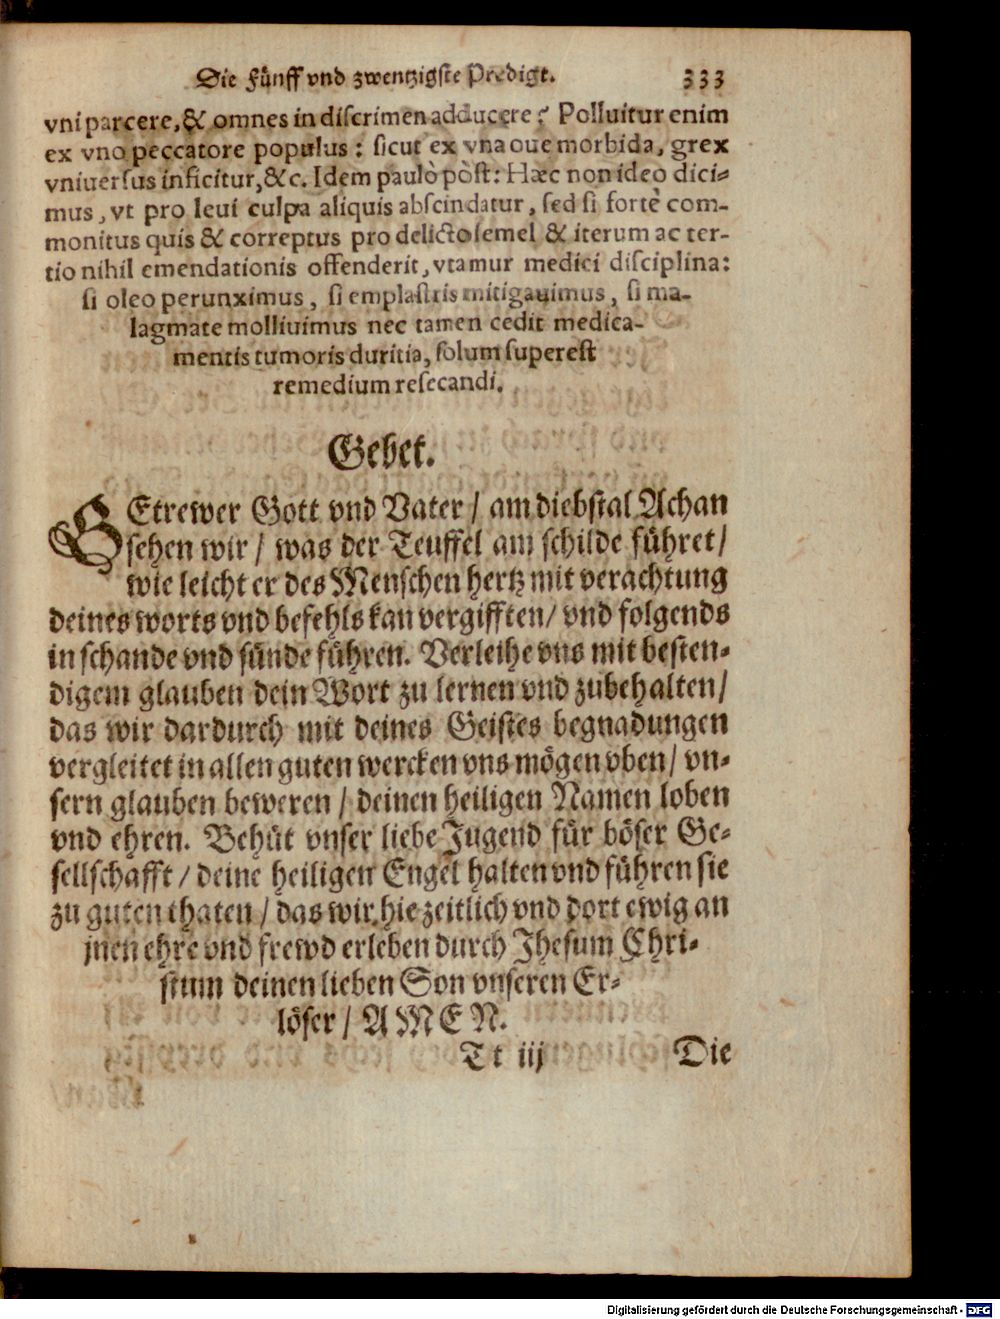 Die Fünff vnd zwentzigste Predigt. 333
vni parcere, & omnes in discrimen adducere? Polluitur enim
ex vno peccatore populus: sicut ex vna oue morbida, grex
vniuersus inficitur, &c. Idem paulò pòst: Hæc non ideò dici-
mus, vt pro leui culpa aliquis abscindatur, sed si fortè com-
monitus quis & correptus pro delicto semel & iterum ac ter-
tio nihil emendationis offenderit, vtamur medici disciplina:
si oleo perunximus, si emplastris mitigauimus, si ma-
lagmate molliuimus nec tamen cedit medica-
mentis tumoris duritia, solum superest
remedium resecandi.
Gebet.
GEtrewer Gott vnd Vater / am diebstal Achan
sehen wir / was der Teuffel am schilde führet /
wie leicht er des Menschen hertz mit verachtung
deines worts vnd befehls kan vergifften / vnd folgends
in schande vnd sünde führen. Verleihe vns mit besten-
digem glauben dein Wort zu lernen vnd zubehalten /
das wir dardurch mit deines Geistes begnadungen
vergleitet in allen guten wercken vns mögen vben / vn-
sern glauben beweren / deinen heiligen Namen loben
vnd ehren. Behüt vnser liebe Jugend für böser Ge-
sellschafft / deine heiligen Engel halten vnd führen sie
zu guten thaten / das wir hie zeitlich vnd dort ewig an
jnen ehre vnd frewd erleben durch Jhesum Chri-
stum deinen lieben Son vnseren Er-
löser / AMEN.
Tt iij Die
Digitalisierung gefördert durch die Deutsche Forschungsgemeinschaft - DFG